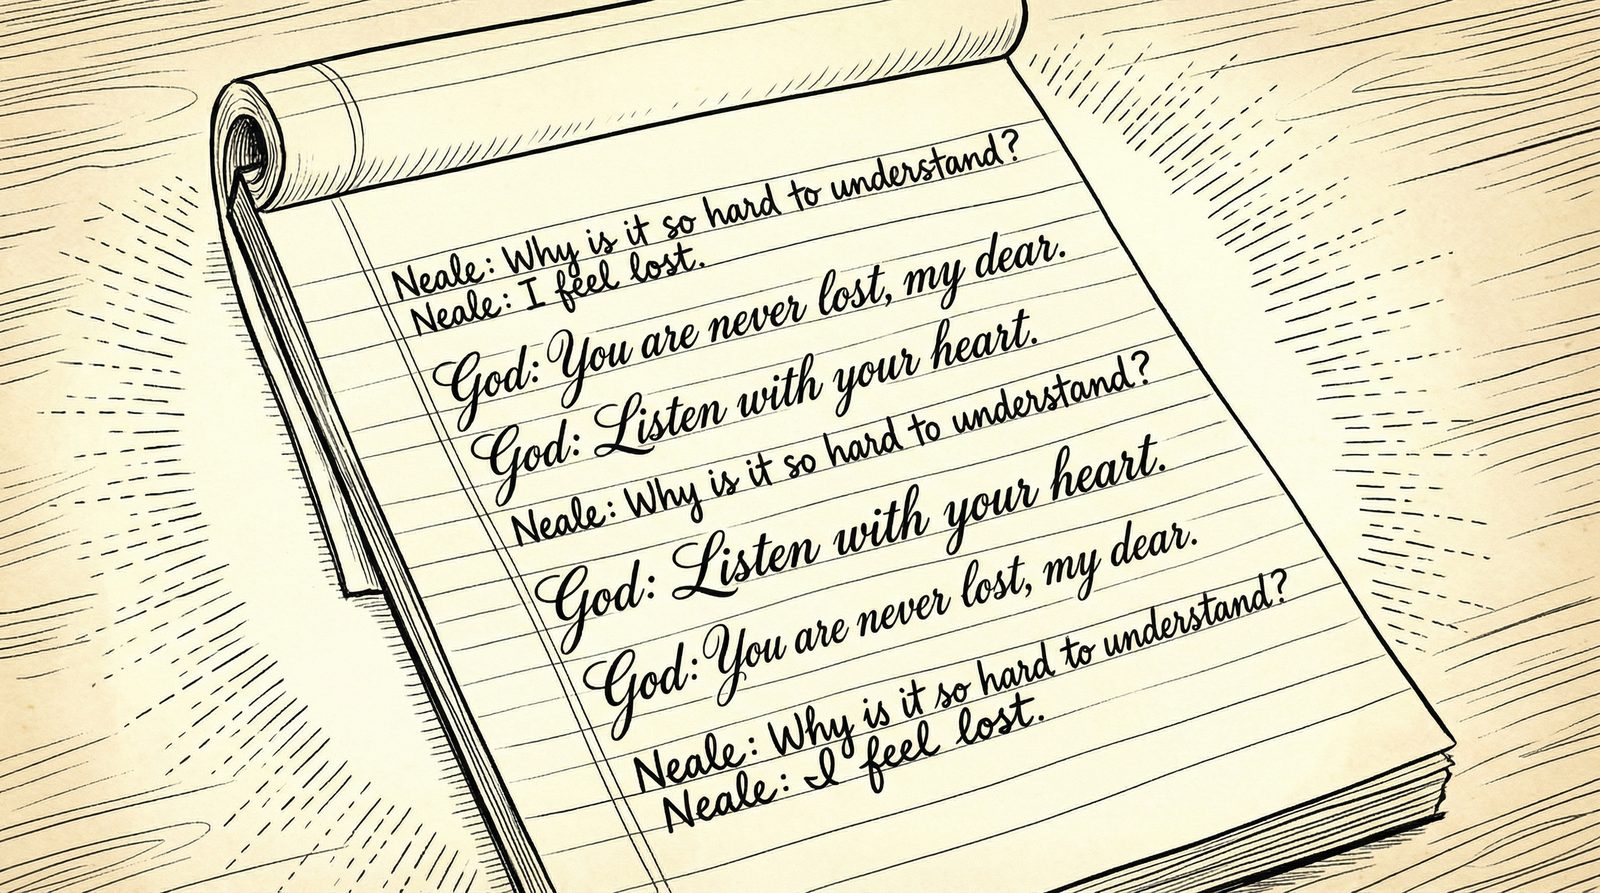 Neale: Why is it so hard to understand?
Neale: I feel lost.
God: You are never lost, my dear.
God: Listen with your heart.
Neale: Why is it so hard to understand?
God: Listen with your heart.
God: You are never lost, my dear.
Neale: Why is it so hard to understand?
Neale: I feel lost.